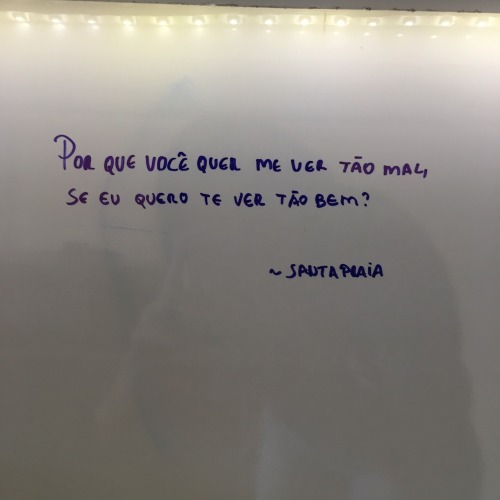 POR QUE VOCÊ QUER ME VER TÃO MAL,
SE EU QUERO TE VER TÃO BEM?
~ SANTAPRAIA